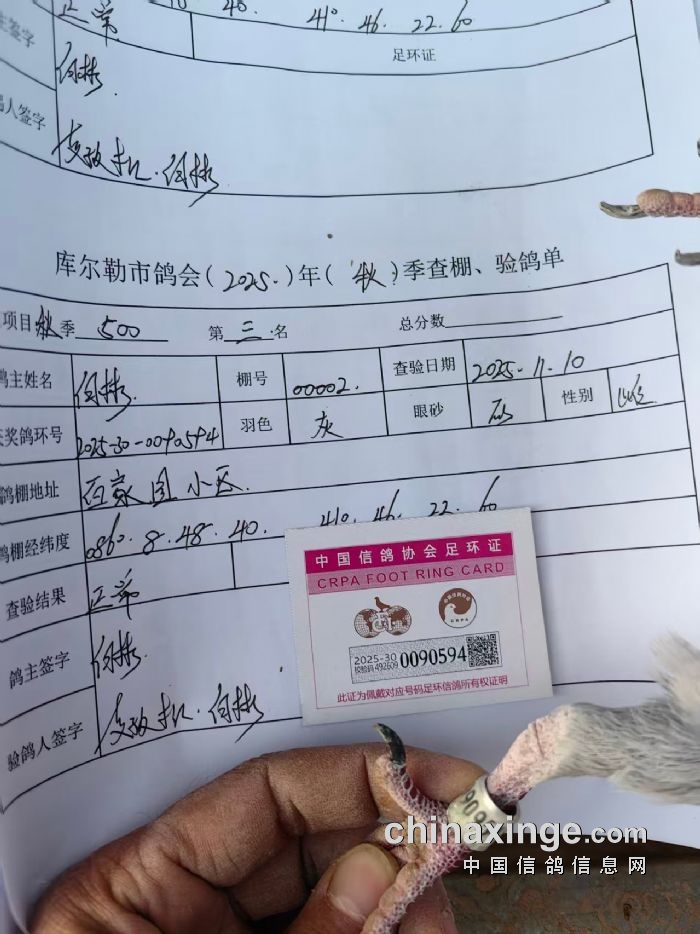 正常
41°.46.22.60
主签字
足环证
鸽人签字
库尔勒市鸽会(2025.)年(秋)季查棚、验鸽单
项目 秋 季 500 第 三 名 总分数
鸽主姓名 棚号 00002. 查验日期 2025.11.10
获奖鸽环号 2025-30-0090594 羽色 灰 眼砂 砂 性别 雌
鸽棚地址 百家园小区.
鸽棚经纬度 086°.8.48.40. 41°.46.22.60
查验结果 正常
鸽主签字
验鸽人签字
中国信鸽协会足环证
CRPA FOOT RING CARD
2025-30
校验码492609
0090594
此证为佩戴对应号码足环信鸽所有权证明
chinaxinge.com
中国信鸽信息网